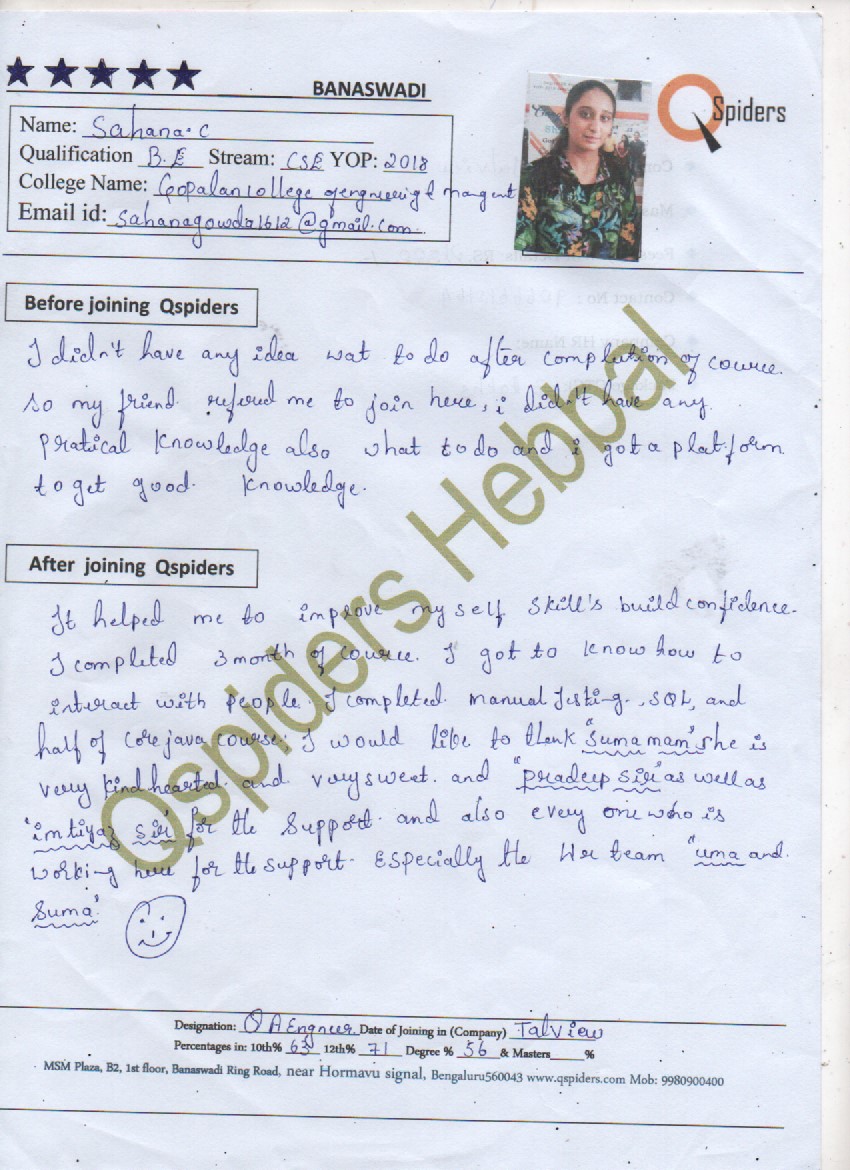 BANASWADI
Qspiders
Name: Sahana.C
Qualification B.E Stream: CSE YOP: 2018
College Name: Gopalan college of engneering & mangent
Email id: sahanagowda1612@gmail.com
Before joining Qspiders
I didn't have any idea wat to do after completion of course.
so my friend refered me to join here, i didn't have any
pratical knowledge also what to do and i got a platform
to get good knowledge.
After joining Qspiders
It helped me to improve my self skill's build confidence.
I completed 3 month of course. I got to know how to
interact with people. I completed manual testing, SQL, and
half of core java course; I would like to thank "suma mam" she is
very kind hearted and very sweet. and "pradeep sir" as well as
"imtiyaz sir" for the support. and also every one who is
working here for the support. Especially the Hr team "uma and
Suma"
Qspiders Hebbal
Designation: QA Engneer Date of Joining in (Company) Talview
Percentages in: 10th% 63 12th% 71 Degree % 56 & Masters %
MSM Plaza, B2, 1st floor, Banaswadi Ring Road, near Hormavu signal, Bengaluru560043 www.qspiders.com Mob: 9980900400